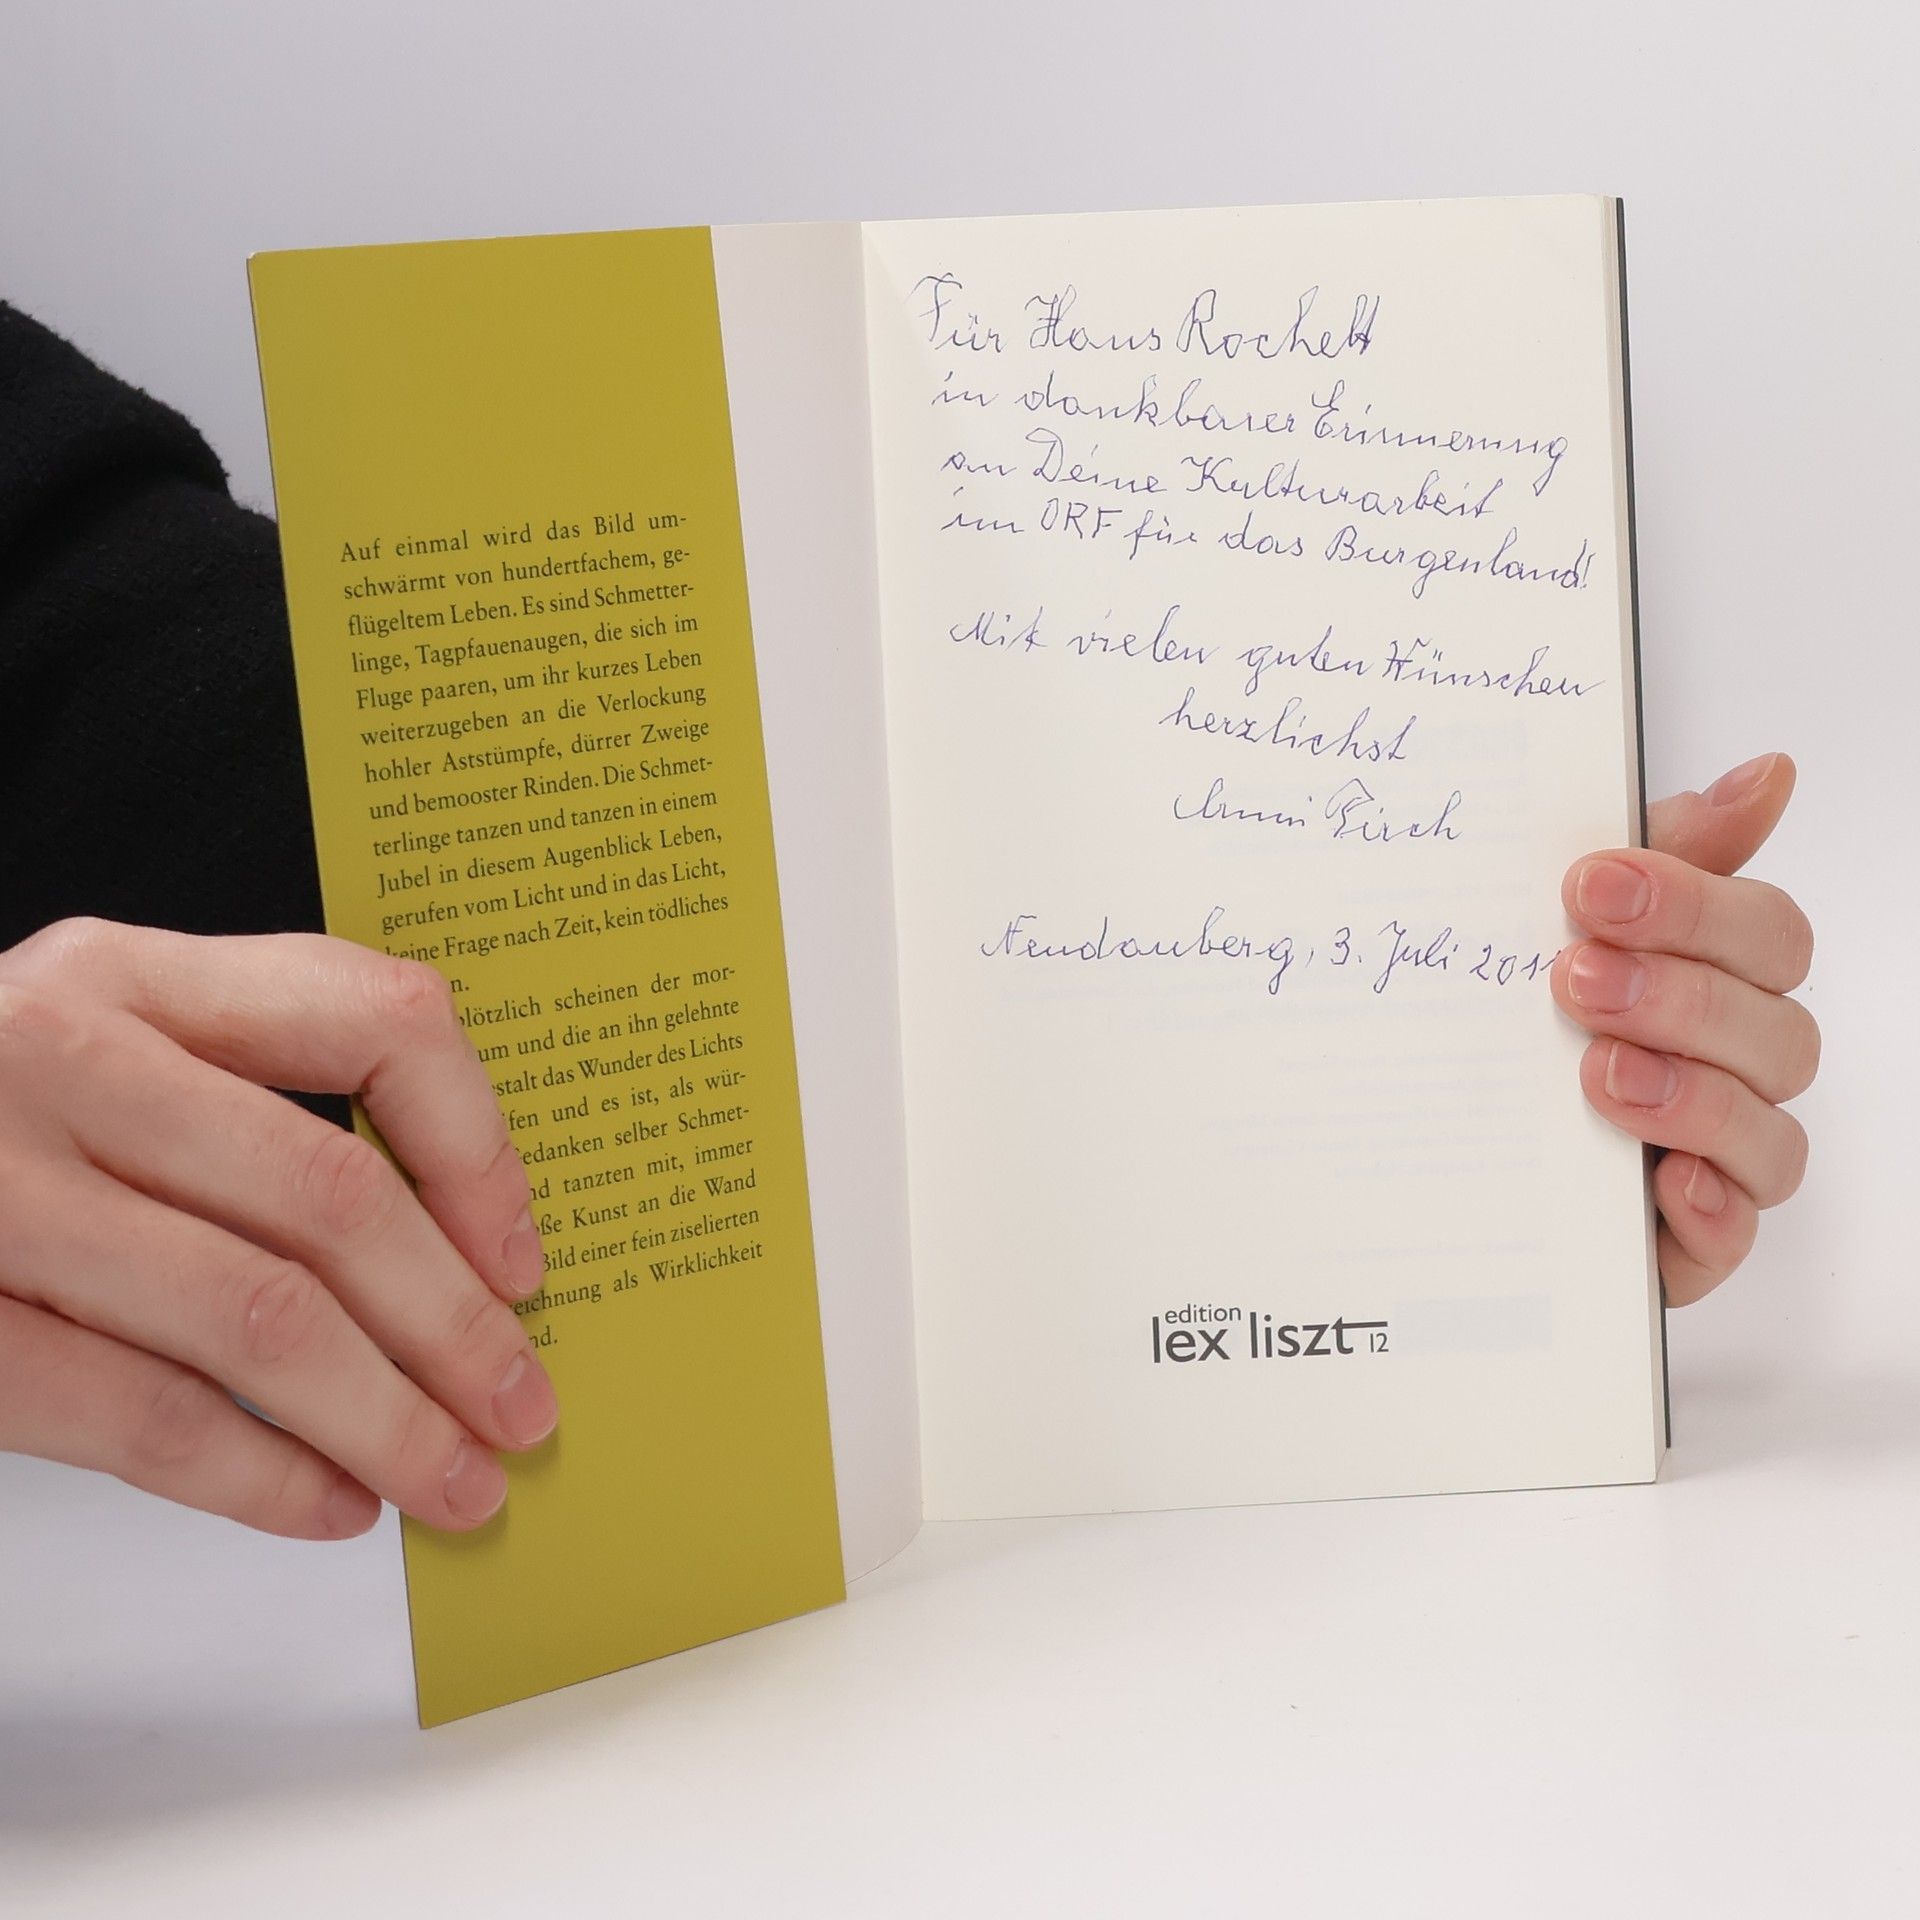 Auf einmal wird das Bild um-
schwärmt von hundertfachem, ge-
flügeltem Leben. Es sind Schmetter-
linge, Tagpfauenaugen, die sich im
Fluge paaren, um ihr kurzes Leben
weiterzugeben an die Verlockung
hohler Aststümpfe, dürrer Zweige
und bemooster Rinden. Die Schmet-
terlinge tanzen und tanzen in einem
Jubel in diesem Augenblick Leben,
gerufen vom Licht und in das Licht,
keine Frage nach Zeit, kein tödliches
n.
plötzlich scheinen der mor-
um und die an ihn gelehnte
stalt das Wunder des Lichts
fen und es ist, als wür-
edanken selber Schmet-
nd tanzten mit, immer
oße Kunst an die Wand
Bild einer fein ziselierten
eichnung als Wirklichkeit
nd.
Für Hans Rochelt
in dankbarer Erinnerung
an Deine Kulturarbeit
im ORF für das Burgenland!
Mit vielen guten Wünschen
herzlichst
Neudauberg, 3. Juli 201
edition
lex liszt 12